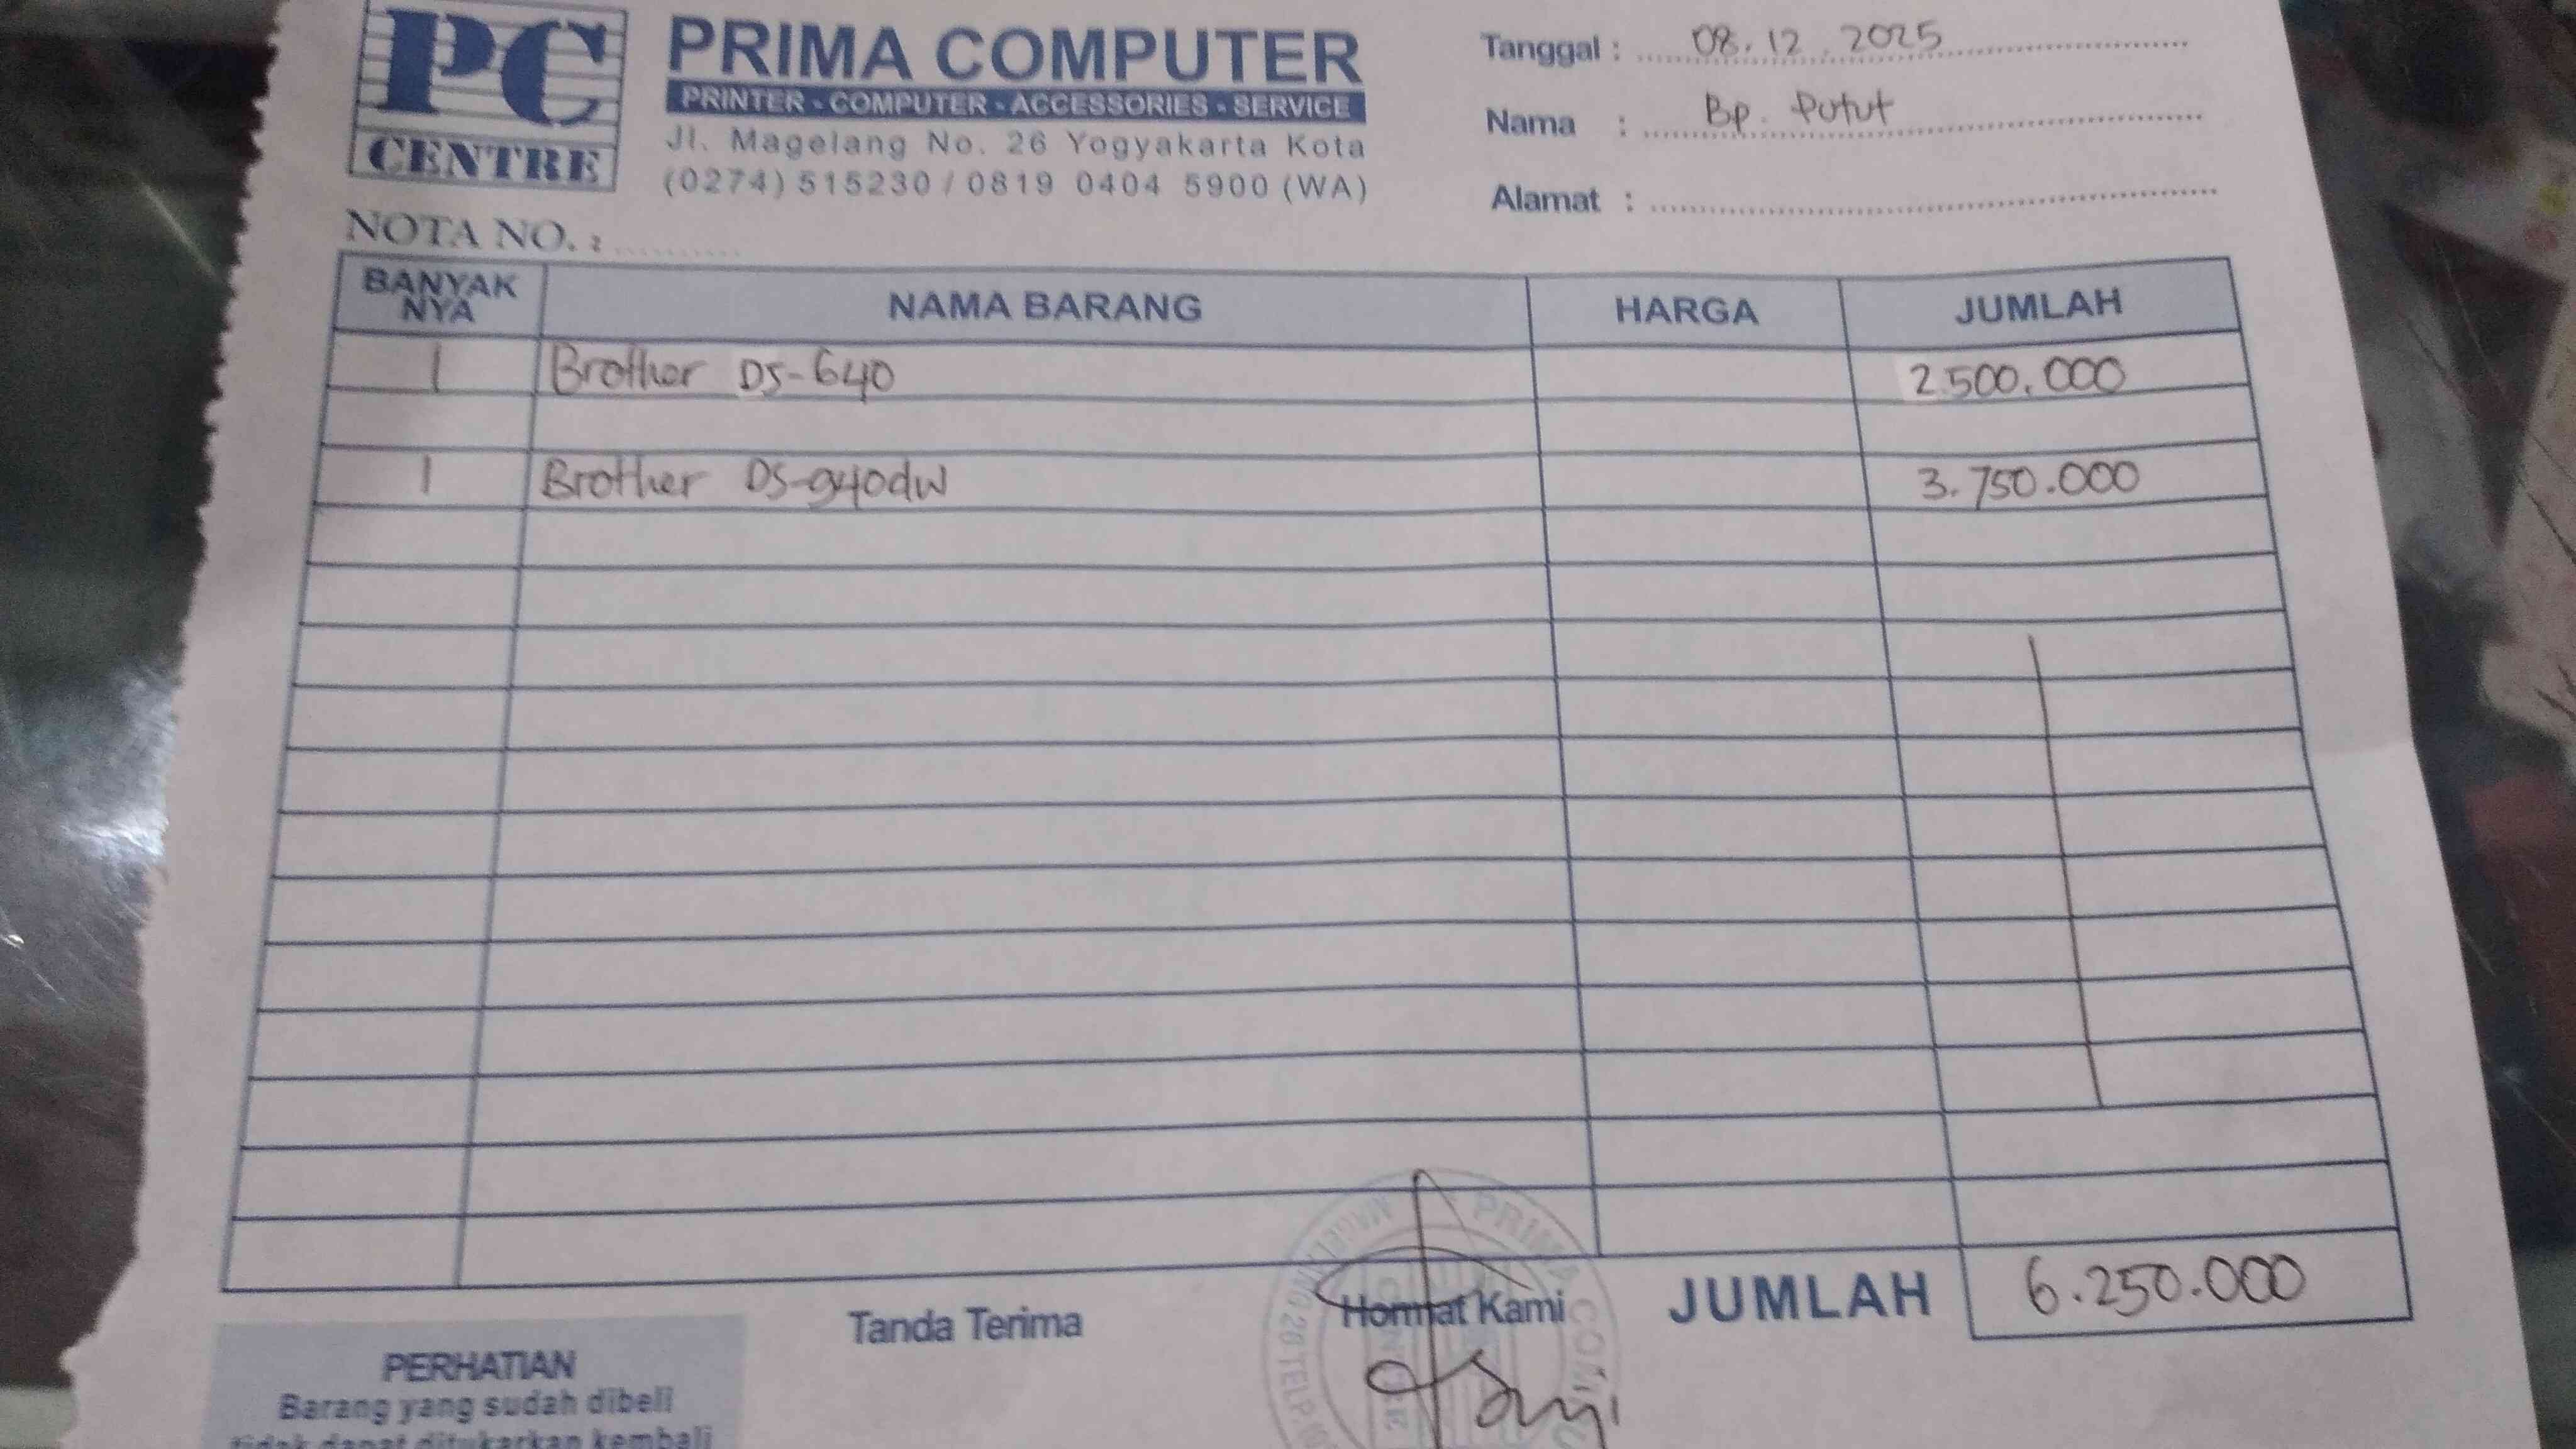 PC
CENTRE
PRIMA COMPUTER
PRINTER - COMPUTER - ACCESSORIES - SERVICE
Jl. Magelang No. 26 Yogyakarta Kota
(0274) 515230 / 0819 0404 5900 (WA)
Tanggal : 08.12.2025
Nama : Bp. Putut
Alamat :
NOTA NO. :
BANYAK NYA NAMA BARANG HARGA JUMLAH
1 Brother DS-640 2.500.000
1 Brother DS-940dw 3.750.000
Tanda Terima Hormat Kami JUMLAH 6.250.000
PRIMA COM
MAGELANG 26 TELP.
PERHATIAN
Barang yang sudah dibeli
tidak dapat ditukarkan kembali